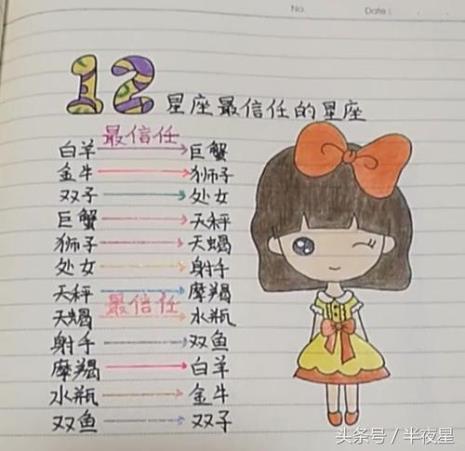 No.
Date:
12星座最信任的星座
最信任
白羊 巨蟹
金牛 狮子
双子 处女
巨蟹 天秤
狮子 天蝎
处女 射手
天秤 摩羯
最信任
天蝎 水瓶
射手 双鱼
摩羯 白羊
水瓶 金牛
双鱼 双子
头条号/半夜星